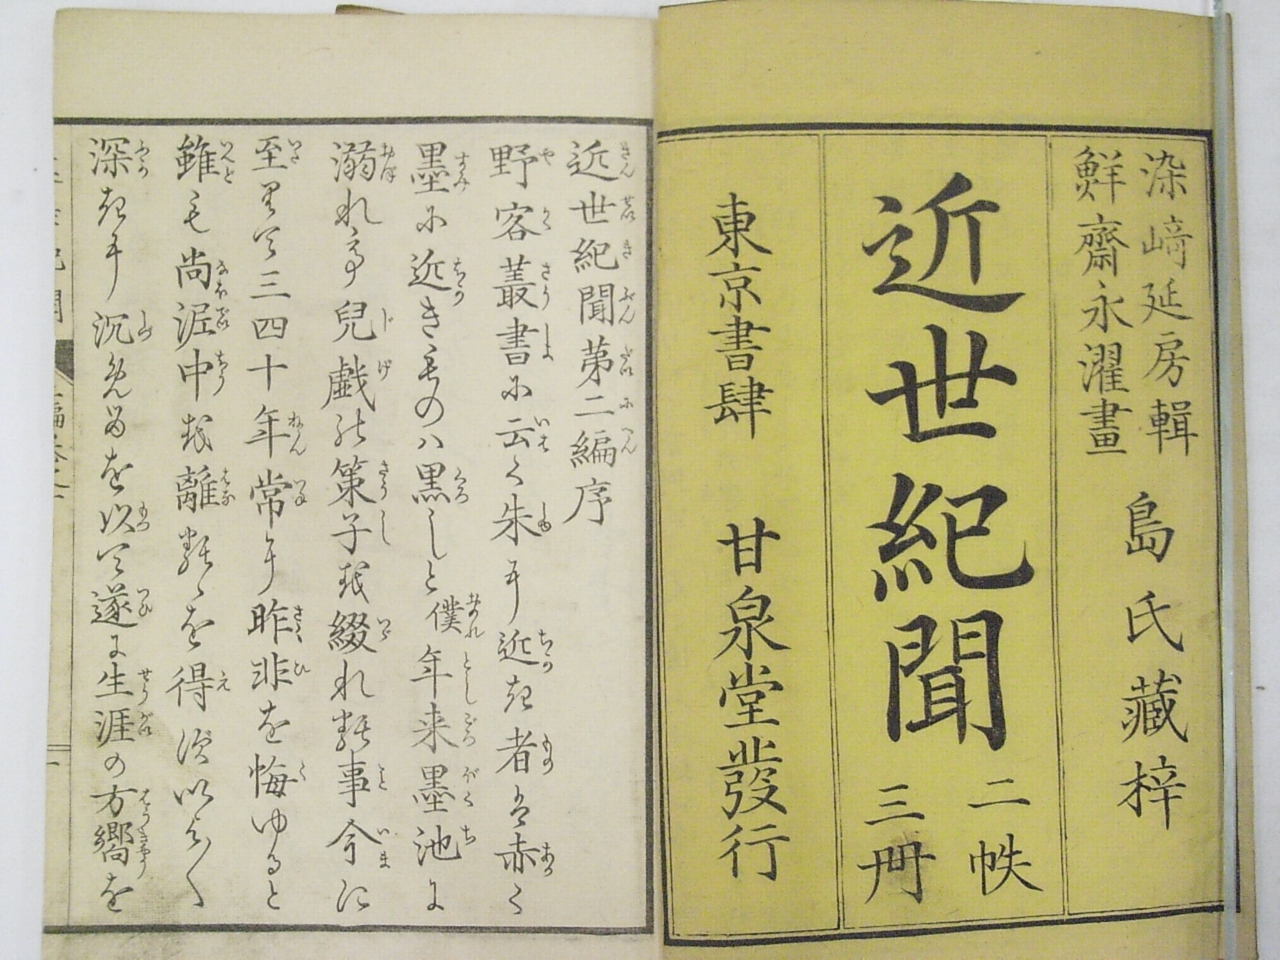 染﨑延房輯
鮮齋永濯畫
島氏藏梓
近世紀聞
二帙
三冊
東京書肆
甘泉堂發行
近世紀聞第二編序
野客叢書に云く朱に近き者は赤く
墨に近きものハ黒しと僕年来墨池に
溺れて兒戯の策子を綴れる事今に
至りて三四十年常に昨非を悔ゆると
雖も尚泥中を離るゝを得ず
深きに沉を以て遂に生涯の方嚮を